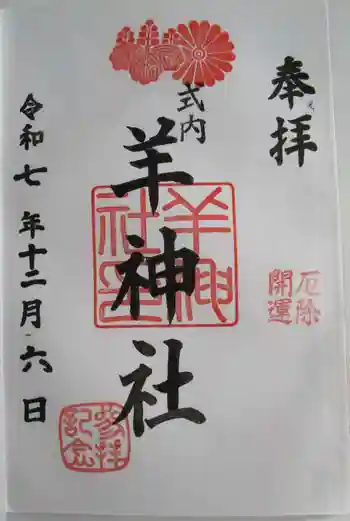 奉拝
厄除
開運
式内
羊神社
羊神社印
参拝
記念
令和七年十二月六日